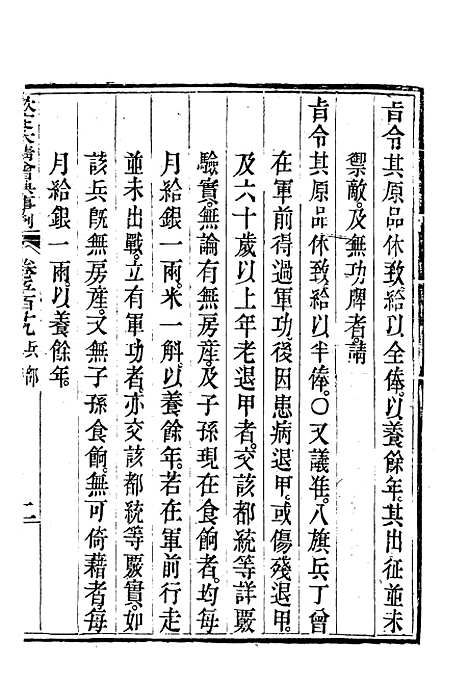 旨令其原品休致給以全俸。以養餘年。其出征並未
禦敵。及無功牌者。請
旨令其原品休致。給以半俸。〇又議准。八旗兵丁曾
在軍前得過軍功。後因患病退甲。或傷殘退甲。
及六十歲以上年老退甲者。交該都統等詳覈
驗實。無論有無房產。及子孫現在食餉者。均每
月給銀一兩。米一斛。以養餘年。若在軍前行走
並未出戰。立有軍功者。亦交該都統等覈實。如
該兵既無房產。又無子孫食餉。無可倚藉者。每
月給銀一兩。以養餘年。
欽定大清會典事例 卷五百十九 兵部